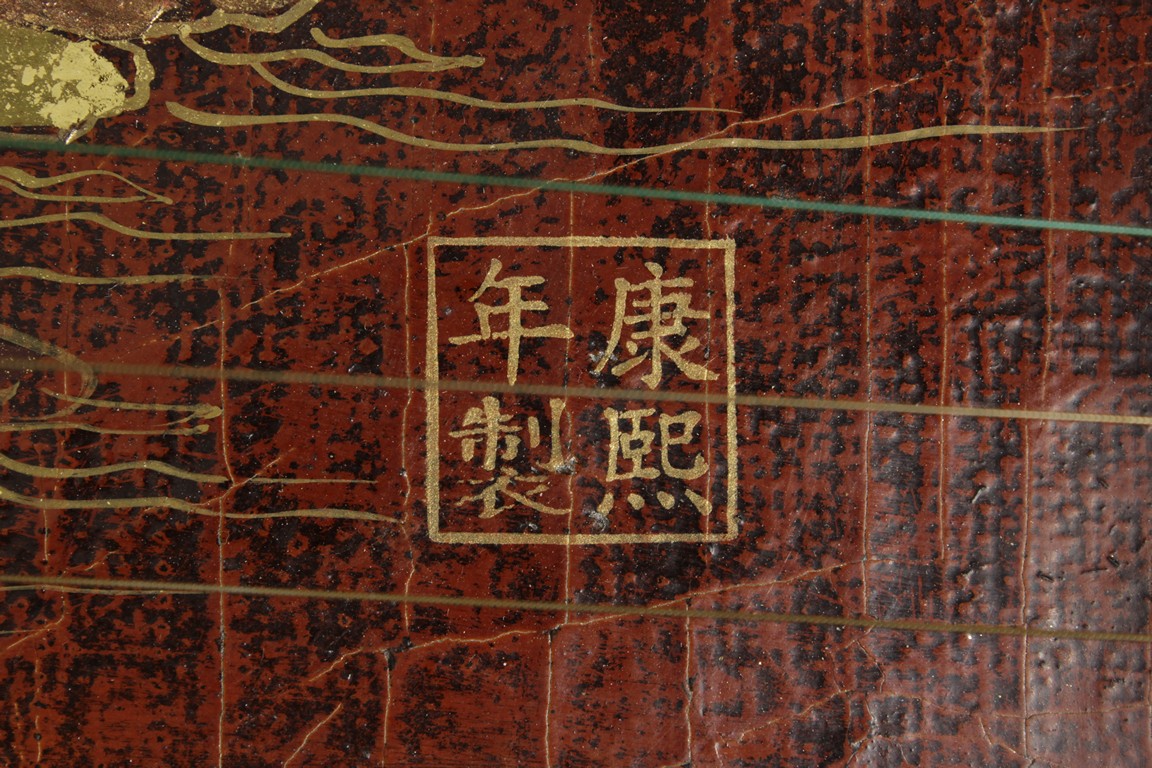 康熙
年製